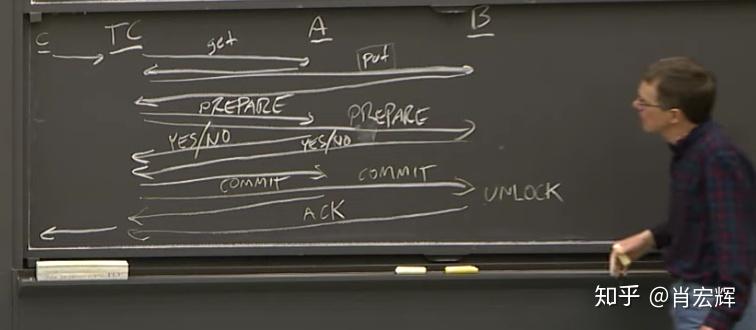 C TC A B
get
put
PREPARE PREPARE
YES/NO YES/NO
COMMIT COMMIT
UNLOCK
ACK
知乎 @肖宏辉